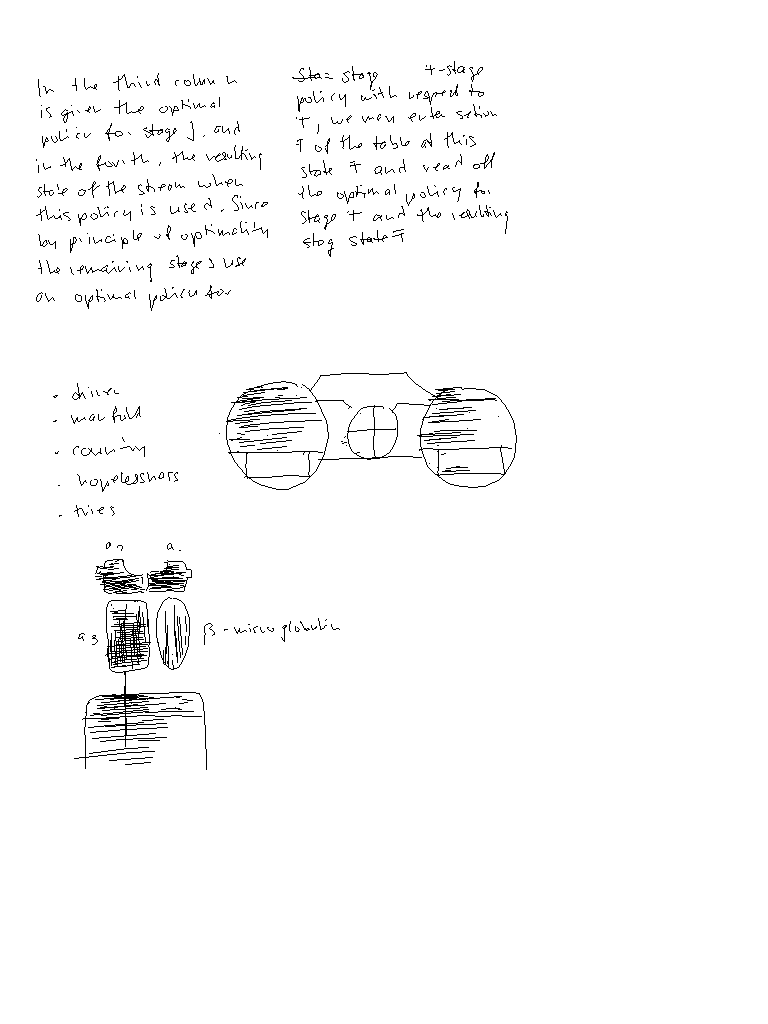 In the third column
is given the optimal
policy for stage J, and
in the fourth, the resulting
state of the stream when
this policy is used. Since
by principle of optimality
the remaining stages use
an optimal policy for
stage T-stage
policy with respect to
T, we may enter section
T of the table at this
state T and read off
the optimal policy for
stage T and the resulting
stag state T
- manifold
- country
- hopelessness
- tires
a2 a1
a3 β-microglobulin